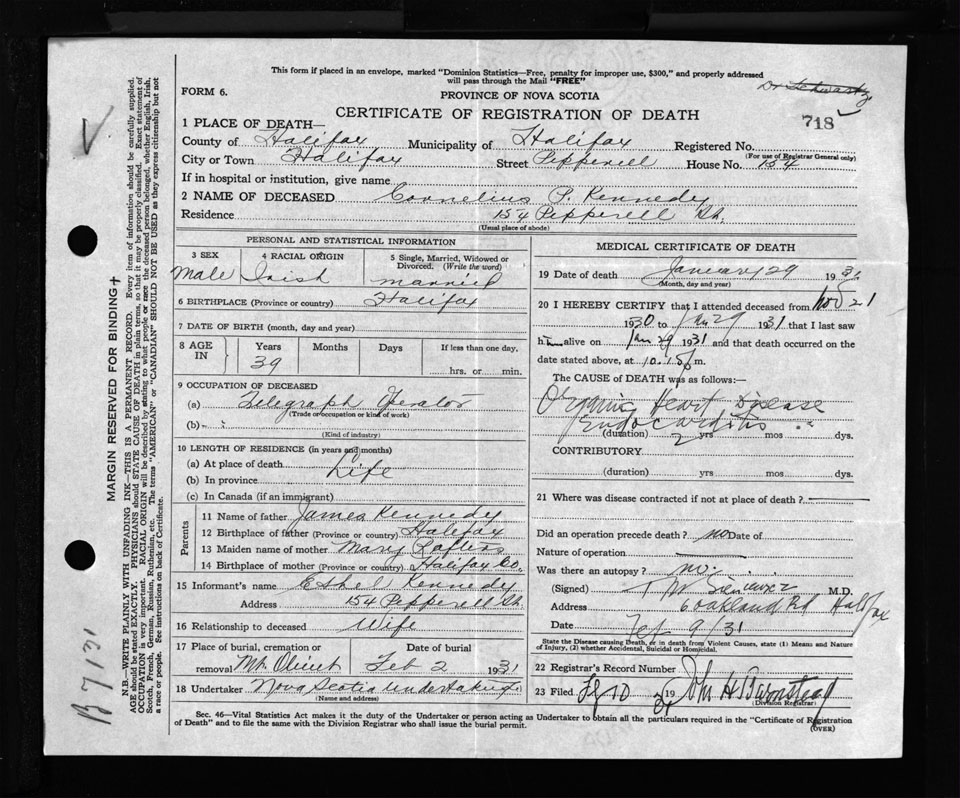 This form if placed in an envelope, marked "Dominion Statistics—Free, penalty for improper use, $300," and properly addressed
will pass through the Mail "FREE"
Dr Schwartz
FORM 6.
PROVINCE OF NOVA SCOTIA
CERTIFICATE OF REGISTRATION OF DEATH
718
1 PLACE OF DEATH—
County of Halifax Municipality of Halifax Registered No.
(For use of Registrar General only)
City or Town Halifax Street Pepperell House No. 154
If in hospital or institution, give name
2 NAME OF DECEASED Cornelius P. Kennedy
Residence 154 Pepperell St.
(Usual place of abode)
PERSONAL AND STATISTICAL INFORMATION
3 SEX 4 RACIAL ORIGIN 5 Single, Married, Widowed or Divorced. (Write the word)
Male Irish married
6 BIRTHPLACE (Province or country) Halifax
7 DATE OF BIRTH (month, day and year)
8 AGE IN Years Months Days If less than one day,
39
hrs. or min.
9 OCCUPATION OF DECEASED
(a) Telegraph Operator
(Trade or occupation or kind of work)
(b)
(Kind of industry)
10 LENGTH OF RESIDENCE (in years and months)
(a) At place of death
(b) In province Life
(c) In Canada (if an immigrant)
Parents
11 Name of father James Kennedy
12 Birthplace of father (Province or country) Halifax
13 Maiden name of mother Mary
14 Birthplace of mother (Province or country) Halifax Co.
15 Informant's name Ethel Kennedy
Address 154 Pepperell St.
16 Relationship to deceased Wife
17 Place of burial, cremation or removal Mt. Olivet Date of burial Feb 2 1931
18 Undertaker Nova Scotia Undertaking
(Name and address)
MEDICAL CERTIFICATE OF DEATH
19 Date of death January 29 1931
(Month, day and year)
20 I HEREBY CERTIFY that I attended deceased from Nov 21
1930 to Jan 29 1931 that I last saw
h alive on Jan 29 1931 and that death occurred on the
date stated above, at m.
The CAUSE of DEATH was as follows:
Organic Heart Disease
Endocarditis
(duration) 2 yrs mos dys.
CONTRIBUTORY
(duration) yrs mos dys.
21 Where was disease contracted if not at place of death?
Did an operation precede death? no Date of
Nature of operation
Was there an autopsy? no.
(Signed) M.D.
Address 6 Oakland Rd Halifax
Date Feb 9/31
State the Disease causing Death, or in death from Violent Causes, state (1) Means and Nature
of Injury, (2) whether Accidental, Suicidal or Homicidal.
22 Registrar's Record Number
23 Filed 19 31 John H Barnstead
(Division Registrar)
Sec. 46—Vital Statistics Act makes it the duty of the Undertaker or person acting as Undertaker to obtain all the particulars required in the "Certificate of Registration
of Death" and to file the same with the Division Registrar who shall issue the burial permit.
(OVER)
MARGIN RESERVED FOR BINDING
N.B.—WRITE PLAINLY WITH UNFADING INK—THIS IS A PERMANENT RECORD. Every item of information should be carefully supplied.
AGE should be stated EXACTLY. PHYSICIANS should STATE CAUSE OF DEATH in plain terms, so that it may be properly classified. Exact statement of
OCCUPATION is very important. RACIAL ORIGIN will be described by stating to what people or race the deceased person belonged, whether English, Irish,
Scotch, French, German, Russian, Ruthenian, etc. The terms "AMERICAN" or "CANADIAN" SHOULD NOT BE USED as they express citizenship but not
a race or people. See instructions on back of Certificate.
B 7131